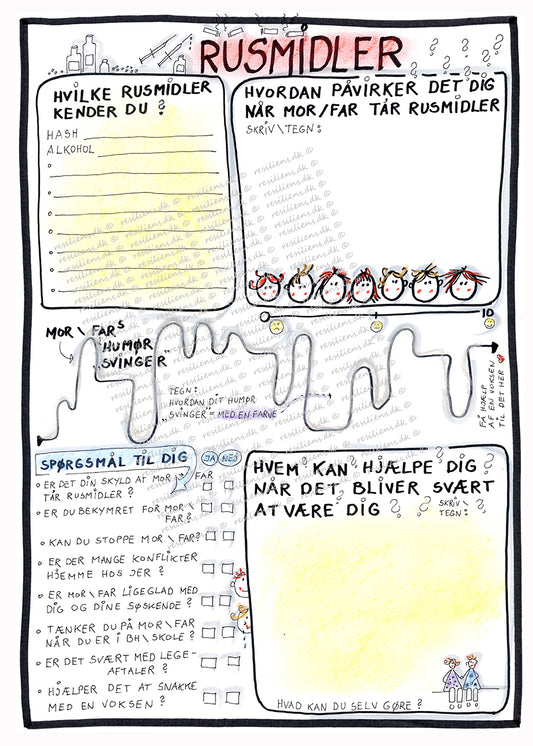 RUSMIDLER
HVILKE RUSMIDLER
KENDER DU?
HASH
ALKOHOL
HVORDAN PÅVIRKER DET DIG
NÅR MOR/FAR TAR RUSMIDLER
SKRIV\TEGN:
0
+
10
MOR\FARS
HUMØR
"SVINGER"
TEGN:
HVORDAN DIT HUMØR
"SVINGER" - MED EN FARVE
FÅ HJÆLP
AF EN VOKSEN
TIL DET HER
SPØRGSMÅL TIL DIG
JA NEJ
ER DET DIN SKYLD AT MOR\FAR
TAR RUSMIDLER?
ER DU BEKYMRET FOR MOR\
FAR?
KAN DU STOPPE MOR\FAR?
ER DER MANGE KONFLIKTER
HJEMME HOS JER?
ER MOR\FAR LIGEGLAD MED
DIG OG DINE SØSKENDE?
TÆNKER DU PÅ MOR\FAR
NÅR DU ER I BH\SKOLE?
ER DET SVÆRT MED LEGE-
AFTALER?
HJÆLPER DET AT SNAKKE
MED EN VOKSEN?
HVEM KAN HJÆLPE DIG
NÅR DET BLIVER SVÆRT
AT VÆRE DIG ? ? ? ? ?
SKRIV\
TEGN:
HVAD KAN DU SELV GØRE?
resiliens.dk ©